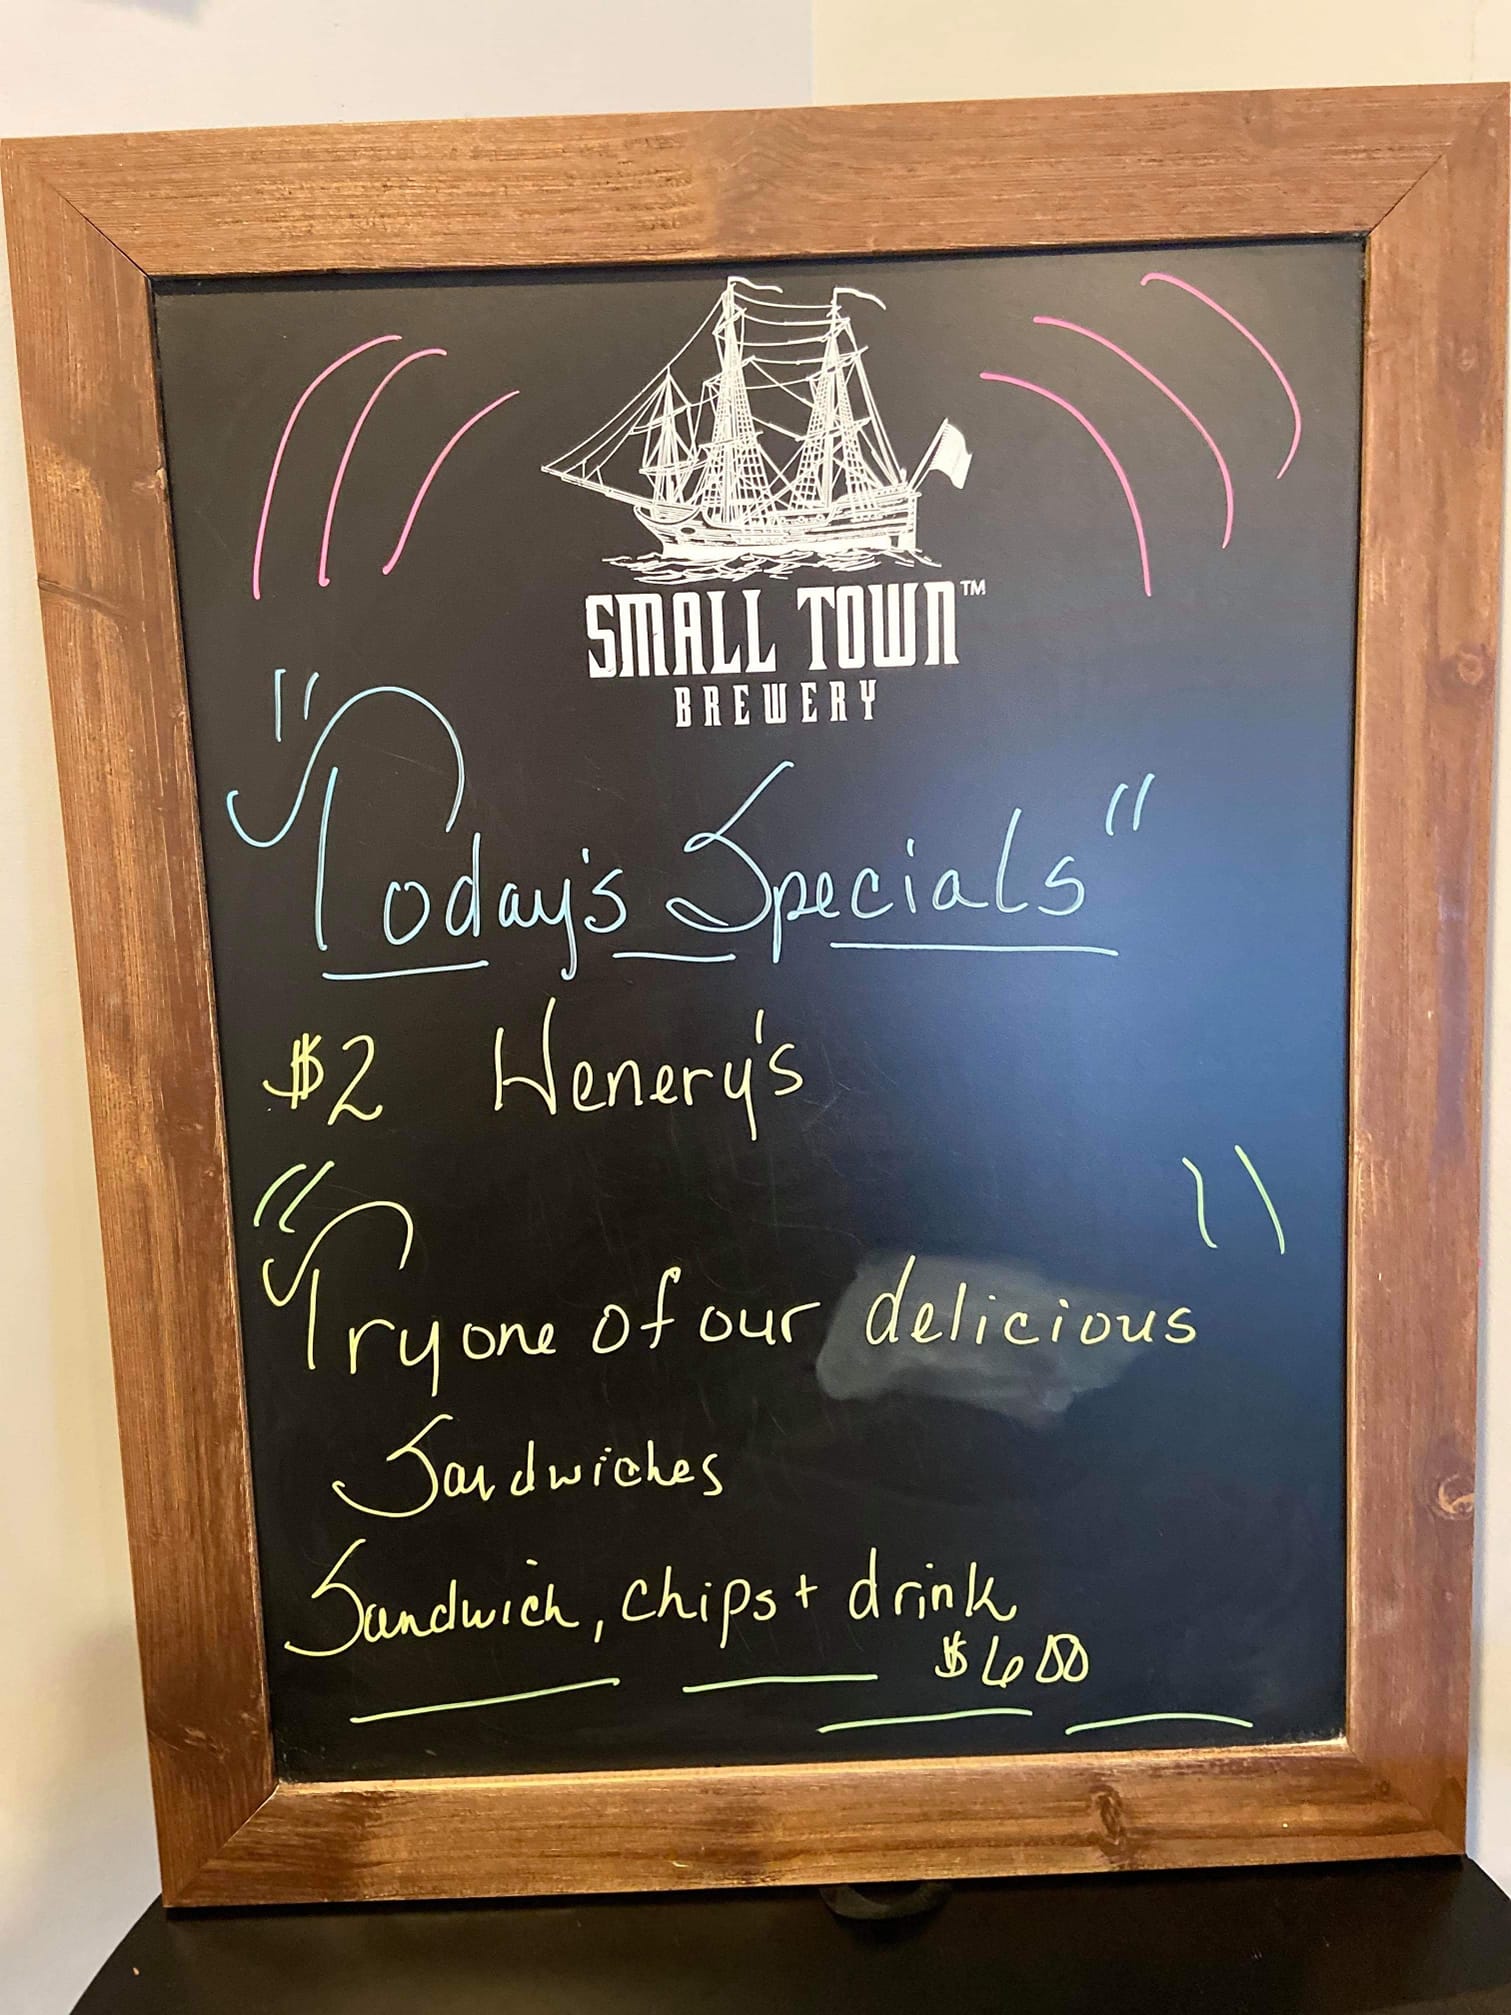 SMALL TOWN™
BREWERY
"Today's Specials"
$2 Henery's
"Try one of our delicious"
Sandwiches
Sandwich, chips + drink
$6.00